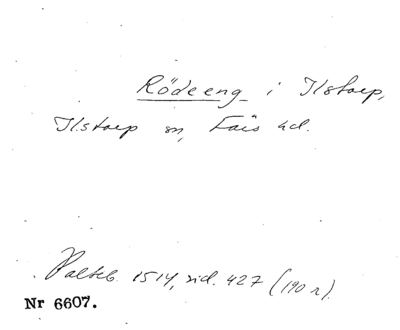 Rödeeng i Ilstorp,
Ilstorp sn, Färs hd.
Paltsb. 1514, sid. 427 (190 r).
Nr 6607.